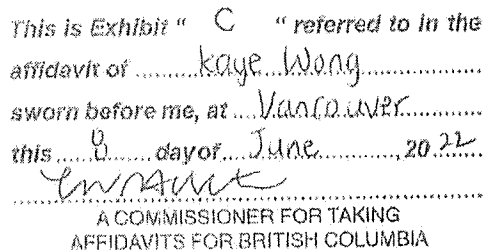 This is Exhibit " C " referred to in the
affidavit of kaye Wong
sworn before me, at Vancouver
this 8 day of June, 2022
A COMMISSIONER FOR TAKING
AFFIDAVITS FOR BRITISH COLUMBIA